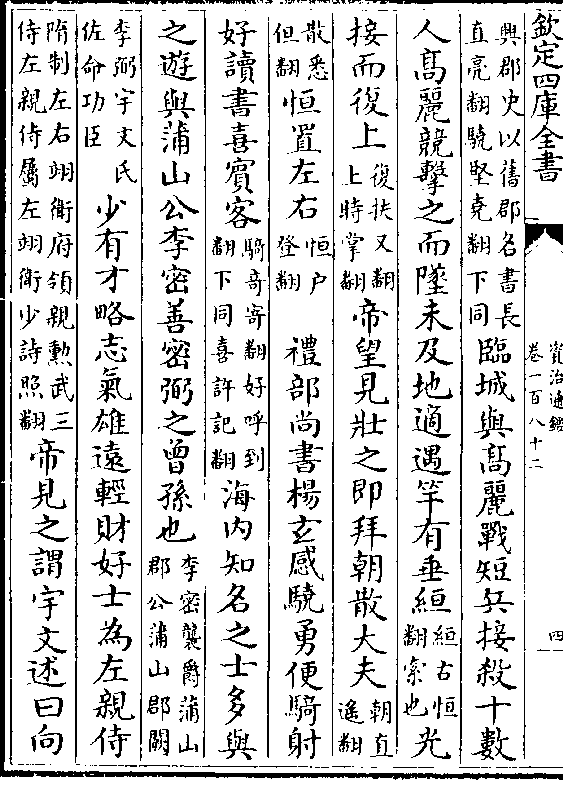 欽定四庫全書
資治通鑑
卷一百八十二
四
興郡史以舊郡名書長
直亮翻驍堅堯翻下同
臨城與髙麗戰短兵接殺十數
人髙麗競擊之而墜未及地適遇竿有垂絙
絙古恒
翻索也
光
接而復上
復扶又翻
上時掌翻
帝望見壯之即拜朝散大夫
朝直
遙翻
散悉
但翻
恒置左右
恒户
登翻
禮部尚書楊玄感驍勇便騎射
好讀書喜賓客
騎奇寄翻好呼到
翻下同喜許記翻
海内知名之士多與
之遊與蒲山公李密善密弼之曾孫也
李密襲爵蒲山
郡公蒲山郡闕
李弼宇文氏
佐命功臣
少有才略志氣雄遠輕財好士為左親侍
隋制左右翊衛府領親勲武三
侍左親侍屬左翊衛少詩照翻
帝見之謂宇文述曰向